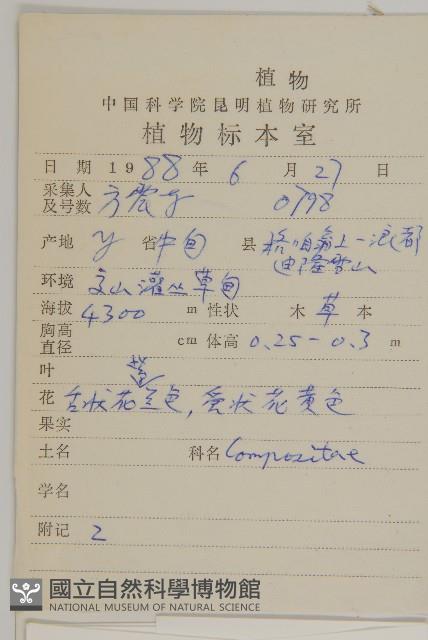 植物
中国科学院昆明植物研究所
植物标本室
日期 1988年 6月 27日
采集人及号数 方震东 0798
产地 Y 省 中甸 县 格咱翁上一浪都
迪隆雪山
环境 高山灌丛草甸
海拔 4300 m 性状 木 草 本
胸高直径 cm 体高 0.25-0.3 m
叶
花 舌状花兰色, 管状花黄色
果实
土名 科名 Compositae
学名
附记 2
國立自然科學博物館
NATIONAL MUSEUM OF NATURAL SCIENCE